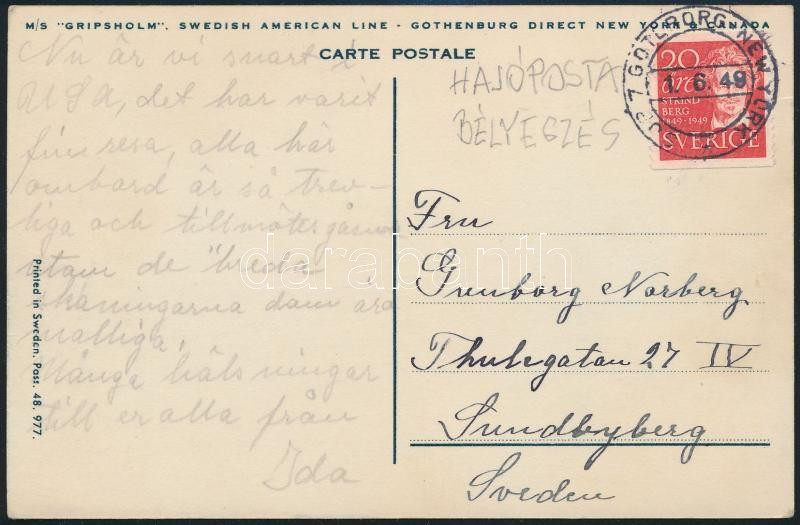 M/S "GRIPSHOLM". SWEDISH AMERICAN LINE - GOTHENBURG DIRECT NEW YORK & CANADA
CARTE POSTALE
Nu är vi snart i
USA, det har varit
fin resa, alla här
ombord är så trev-
liga och tillmötesgående
utom de "breda
skåningarna dom äro
malliga,
Många hälsningar
till er alla från
Ida
Printed in Sweden. Poss. 48. 977.
HAJÓPOSTA
BÉLYEGZÉS
GÖTEBORG-NEW YORK
1. 6. 49
20
öre
STRIND
BERG
1849-1949
SVERIGE
Fru
Gunborg Norberg
Thulegatan 27 IV
Sundbyberg
Sveden
darabanth